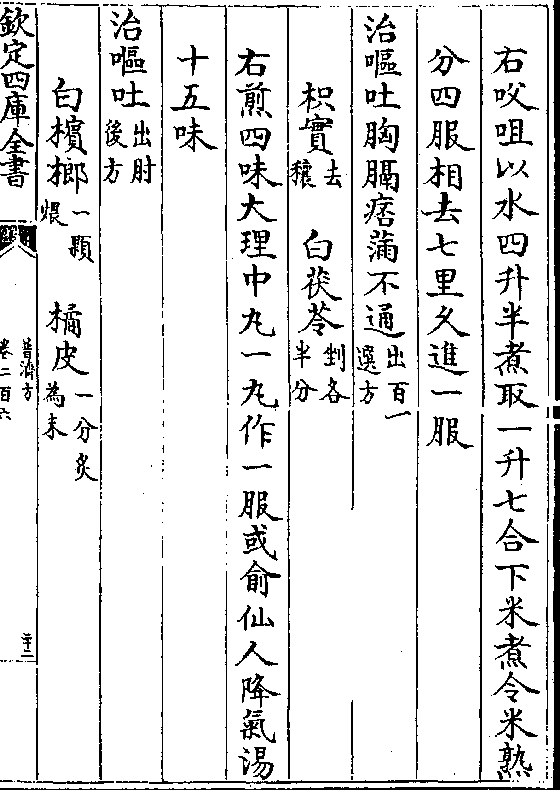 右㕮咀以水四升半煮取一升七合下米煮令米熟
分四服相去七里久進一服
治嘔吐胸膈痞滿不通出百一選方
枳實去穰 白茯苓剉各半分
右煎四味大理中丸一丸作一服或俞仙人降氣湯
十五味
治嘔吐出肘後方
白檳榔一顆煨 橘皮一分炙為末
欽定四庫全書
普濟方
卷二百六